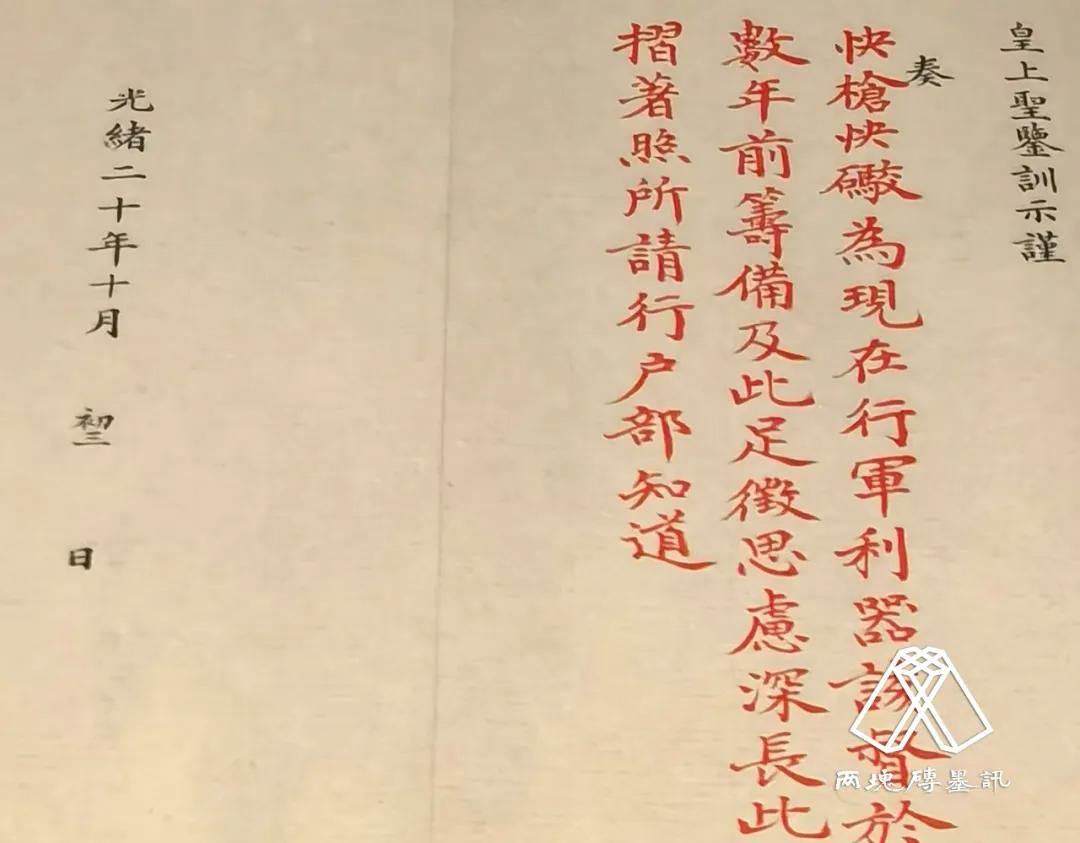 皇上聖鑒訓示謹
奏
快槍快礮為現在行軍利器該督於
數年前籌備及此足徵思慮深長此
摺著照所請行户部知道
光緒二十年十月 初三 日
两塊磚墨訊